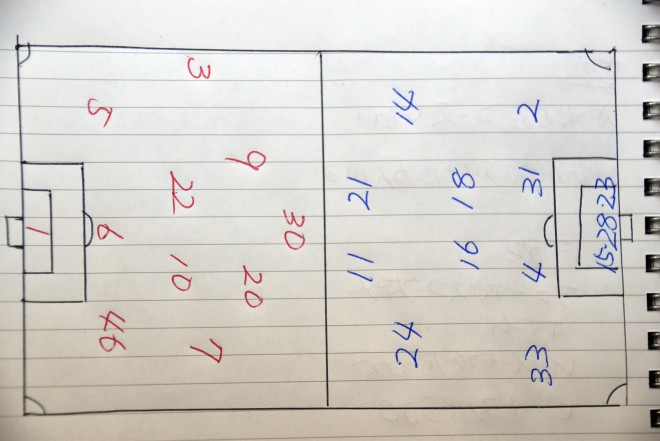 30
9 20
3 7
22 10
5 6 46
1
11 21
24 14
16 18
33 4 31 2
15·28·23